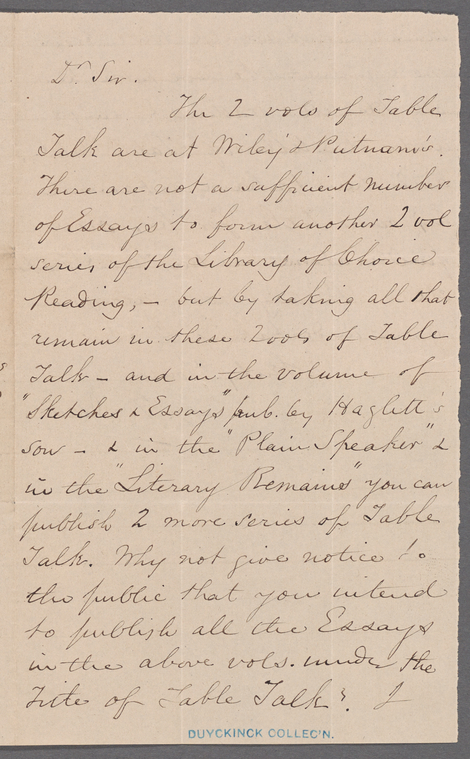 Dr Sir.
The 2 vols of Table
Talk are at Wiley & Putnam's.
There are not a sufficient number
of Essays to form another 2 vol
series of the Library of Choice
Reading, – but by taking all that
remain in these 2 vols of Table
Talk – and in the volume of
"Sketches & Essays" pub. by Hazlitt's
son – & in the "Plain Speaker" &
in the "Literary Remains" you can
publish 2 more series of Table
Talk. Why not give notice to
the public that you intend
to publish all the Essays
in the above vols. under the
title of Table Talk?
DUYCKINCK COLLEC'N.